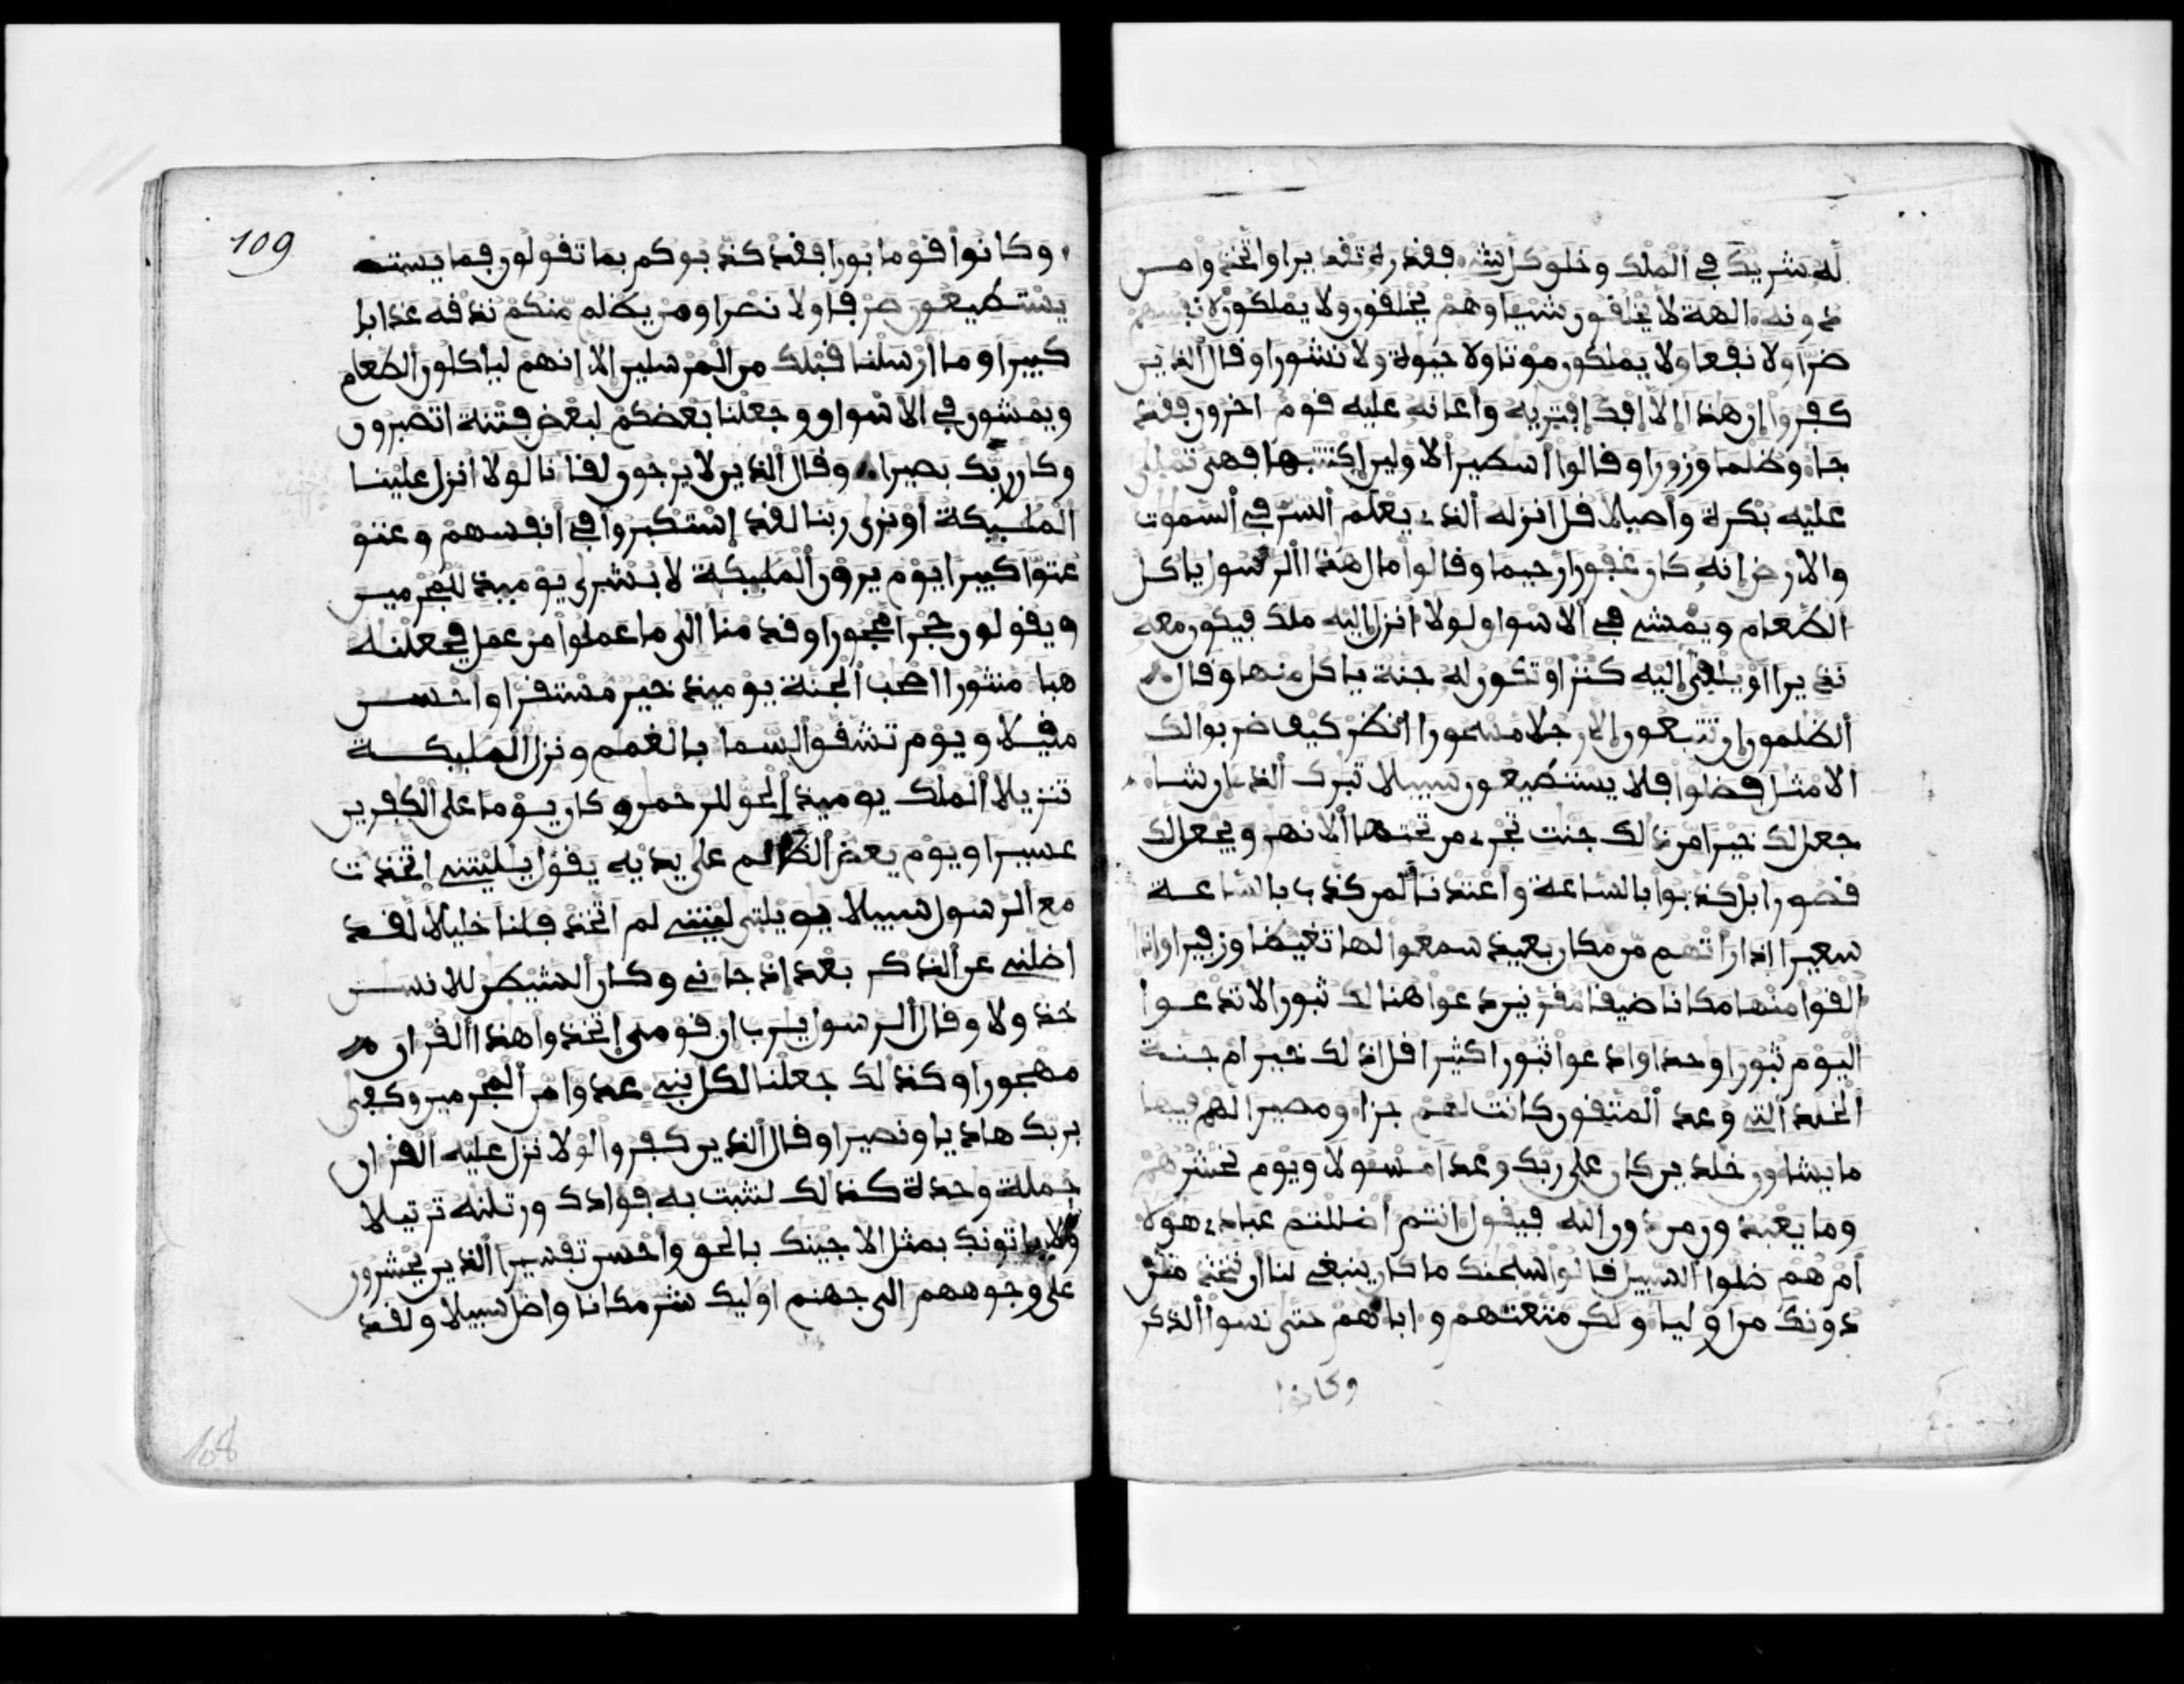 له شريك في الملك وخلق كل شيء ففدره تفديرا واتخذوا من
دونه الهة لا يخلفون شيئا وهم يخلفون ولا يملكون لانفسهم
ضرا ولا نفعا ولا يملكون موتا ولا حيوة ولا نشورا وفال الذين
كفروا ان هذا الا افك افتريه واعانه عليه فوم اخرون ففد
جاءو ظلما وزورا وفالوا اسطير الاولين اكتتبها فهي تملى
عليه بكرة واصيلا فل انزله الذي يعلم السر في السموت
والارض انه كان غفورا رحيما وفالوا مال هذا الرسول ياكل
الطعام ويمشي في الاسواو لولا انزل اليه ملك فيكون معه
نذيرا او يلفى اليه كنز او تكون له جنة ياكل منها وفال
الظلمون ان تتبعون الا رجلا مسحورا انظر كيف ضربوا لك
الامثل فضلوا فلا يستطيعون سبيلا تبرك الذي ان شاء
جعل لك خيرا من ذالك جنت تجري من تحتها الانهر ويجعل لك
فصورا بل كذبوا بالساعة واعتدنا لمن كذب بالساعة
سعيرا اذا راتهم من مكان بعيد سمعوا لها تغيظا وزفيرا واذا
الفوا منها مكانا ضيفا مفرنين دعوا هنالك ثبورا لا تدعوا
اليوم ثبورا وحدا وادعوا ثبورا كثيرا فل اذلك خير ام جنة
الخلد التي وعد المتفون كانت لهم جزاء ومصيرا لهم فيها
ما يشاون خلدين كان على ربك وعدا مسولا ويوم نحشرهم
وما يعبدون من دون الله فيفول انتم اضللتم عبادي هولاء
ام هم ضلوا السبيل فالوا سبحنك ما كان ينبغي لنا ان نتخذ من
دونك من اولياء ولكن متعتهم واباهم حتى نسوا الذكر
وكانوا
109
وكانوا فوما بورا ففد كذبوكم بما تفولون فما يستط
يستطيعون صرفا ولا نصرا ومن يظلم منكم نذفه عذابا
كبيرا وما ارسلنا فبلك من المرسلين الا انهم لياكلون الطعام
ويمشون في الاسواو وجعلنا بعضكم لبعض فتنة اتصبرون
وكان ربك بصيرا وفال الذين لا يرجون لفانا لولا انزل علينا
المليكة او نرى ربنا لفد استكبروا في انفسهم وعتو
عتوا كبيرا يوم يرون المليكة لا بشرى يوميذ للمجرمين
ويفولون حجرا محجورا وفدمنا الى ما عملوا من عمل فجعلنه
هباء منثورا اصحب الجنة يوميذ خير مستفرا واحسن
مفيلا ويوم تشفو السماء بالغمم ونزل المليكة
تنزيلا الملك يوميذ الحو للرحمن وكان يوما على الكفرين
عسيرا ويوم يعض الظالم على يديه يفول يليتني اتخذت
مع الرسول سبيلا يويلتى ليتني لم اتخذ فلنا خليلا لفد
اضلني عن الذكر بعد اذ جاني وكان الشيطن للانسن
خذولا وفال الرسول يرب ان فومي اتخذوا هذا الفران م
مهجورا وكذلك جعلنا لكل نبي عدوا من المجرمين وكفى
بربك هاديا ونصيرا وفال الذين كفروا لولا نزل عليه الفران
جملة وحدة كذلك لنثبت به فوادك ورتلنه ترتيلا
ولا ياتونك بمثل الا جينك بالحو واحسن تفسيرا الذين يحشرون
على وجوههم الى جهنم اوليك شر مكانا واضل سبيلا ولفد
108